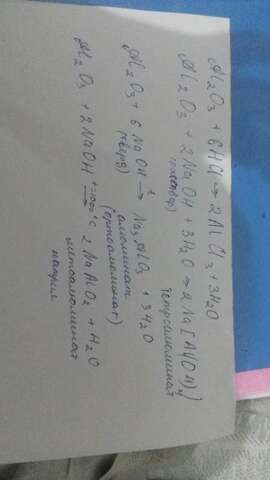 Al₂O₃ + 6HCl → 2AlCl₃ + 3H₂O
Al₂O₃ + 2NaOH + 3H₂O → 2Na[Al(OH)₄]
тетраалюминат
Al₂O₃ + 6NaOH → Na₃AlO₃ + 3H₂O
(тверд) алюминат
(ортоалюминат)
Al₂O₃ + 2NaOH t=1000°C → 2NaAlO₂ + H₂O
метаалюминат
натрия